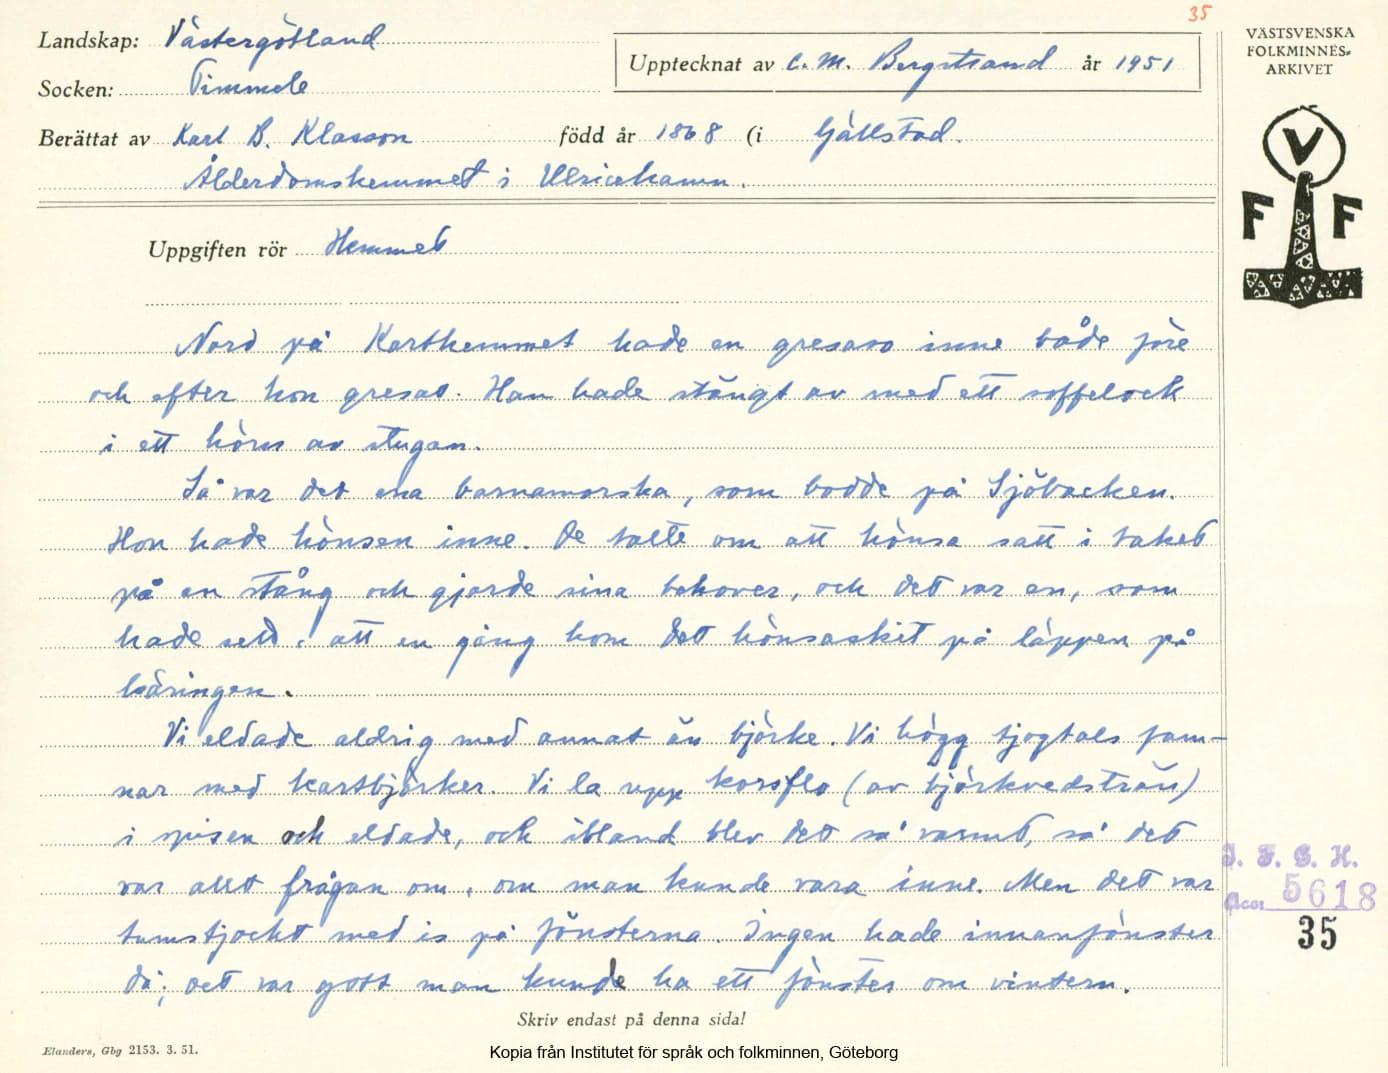 35
Landskap: Västergötland
Socken: Timmele
Upptecknat av C. M. Bergstrand år 1951
Berättat av Karl B. Klasson född år 1868 (i Gällstad.
Ålderdomshemmet i Ulricehamn.
VÄSTSVENSKA
FOLKMINNES-
ARKIVET
V
F F
Uppgiften rör Hemmet
Nord på Karthemmet hade en gresaso inne både före
och efter hon gresat. Han hade stängt av med ett soffelock
i ett hörn av stugan.
Så var det ena barnamorska, som bodde på Sjöbacken.
Hon hade hönsen inne. De talte om att hönsa satt i taket
på en stång och gjorde sina behover, och det var en, som
hade sett, att en gång kom det hönsaskit på läppen på
käringen.
Vi eldade aldrig med annat än björke. Vi högg tjogtals fam-
nar med kartbjörker. Vi la upp korsflo (av björkvedsträn)
i spisen och eldade, och ibland blev det så varmt, så det
var allt frågan om, om man kunde vara inne. Men det var
tumstjockt med is på fönsterna. Ingen hade innanfönster
då; det var gott man kunde ha ett fönster om vintern.
I. F. G. H.
Acc: 5618
35
Skriv endast på denna sida!
Elanders, Gbg 2153. 3. 51.
Kopia från Institutet för språk och folkminnen, Göteborg